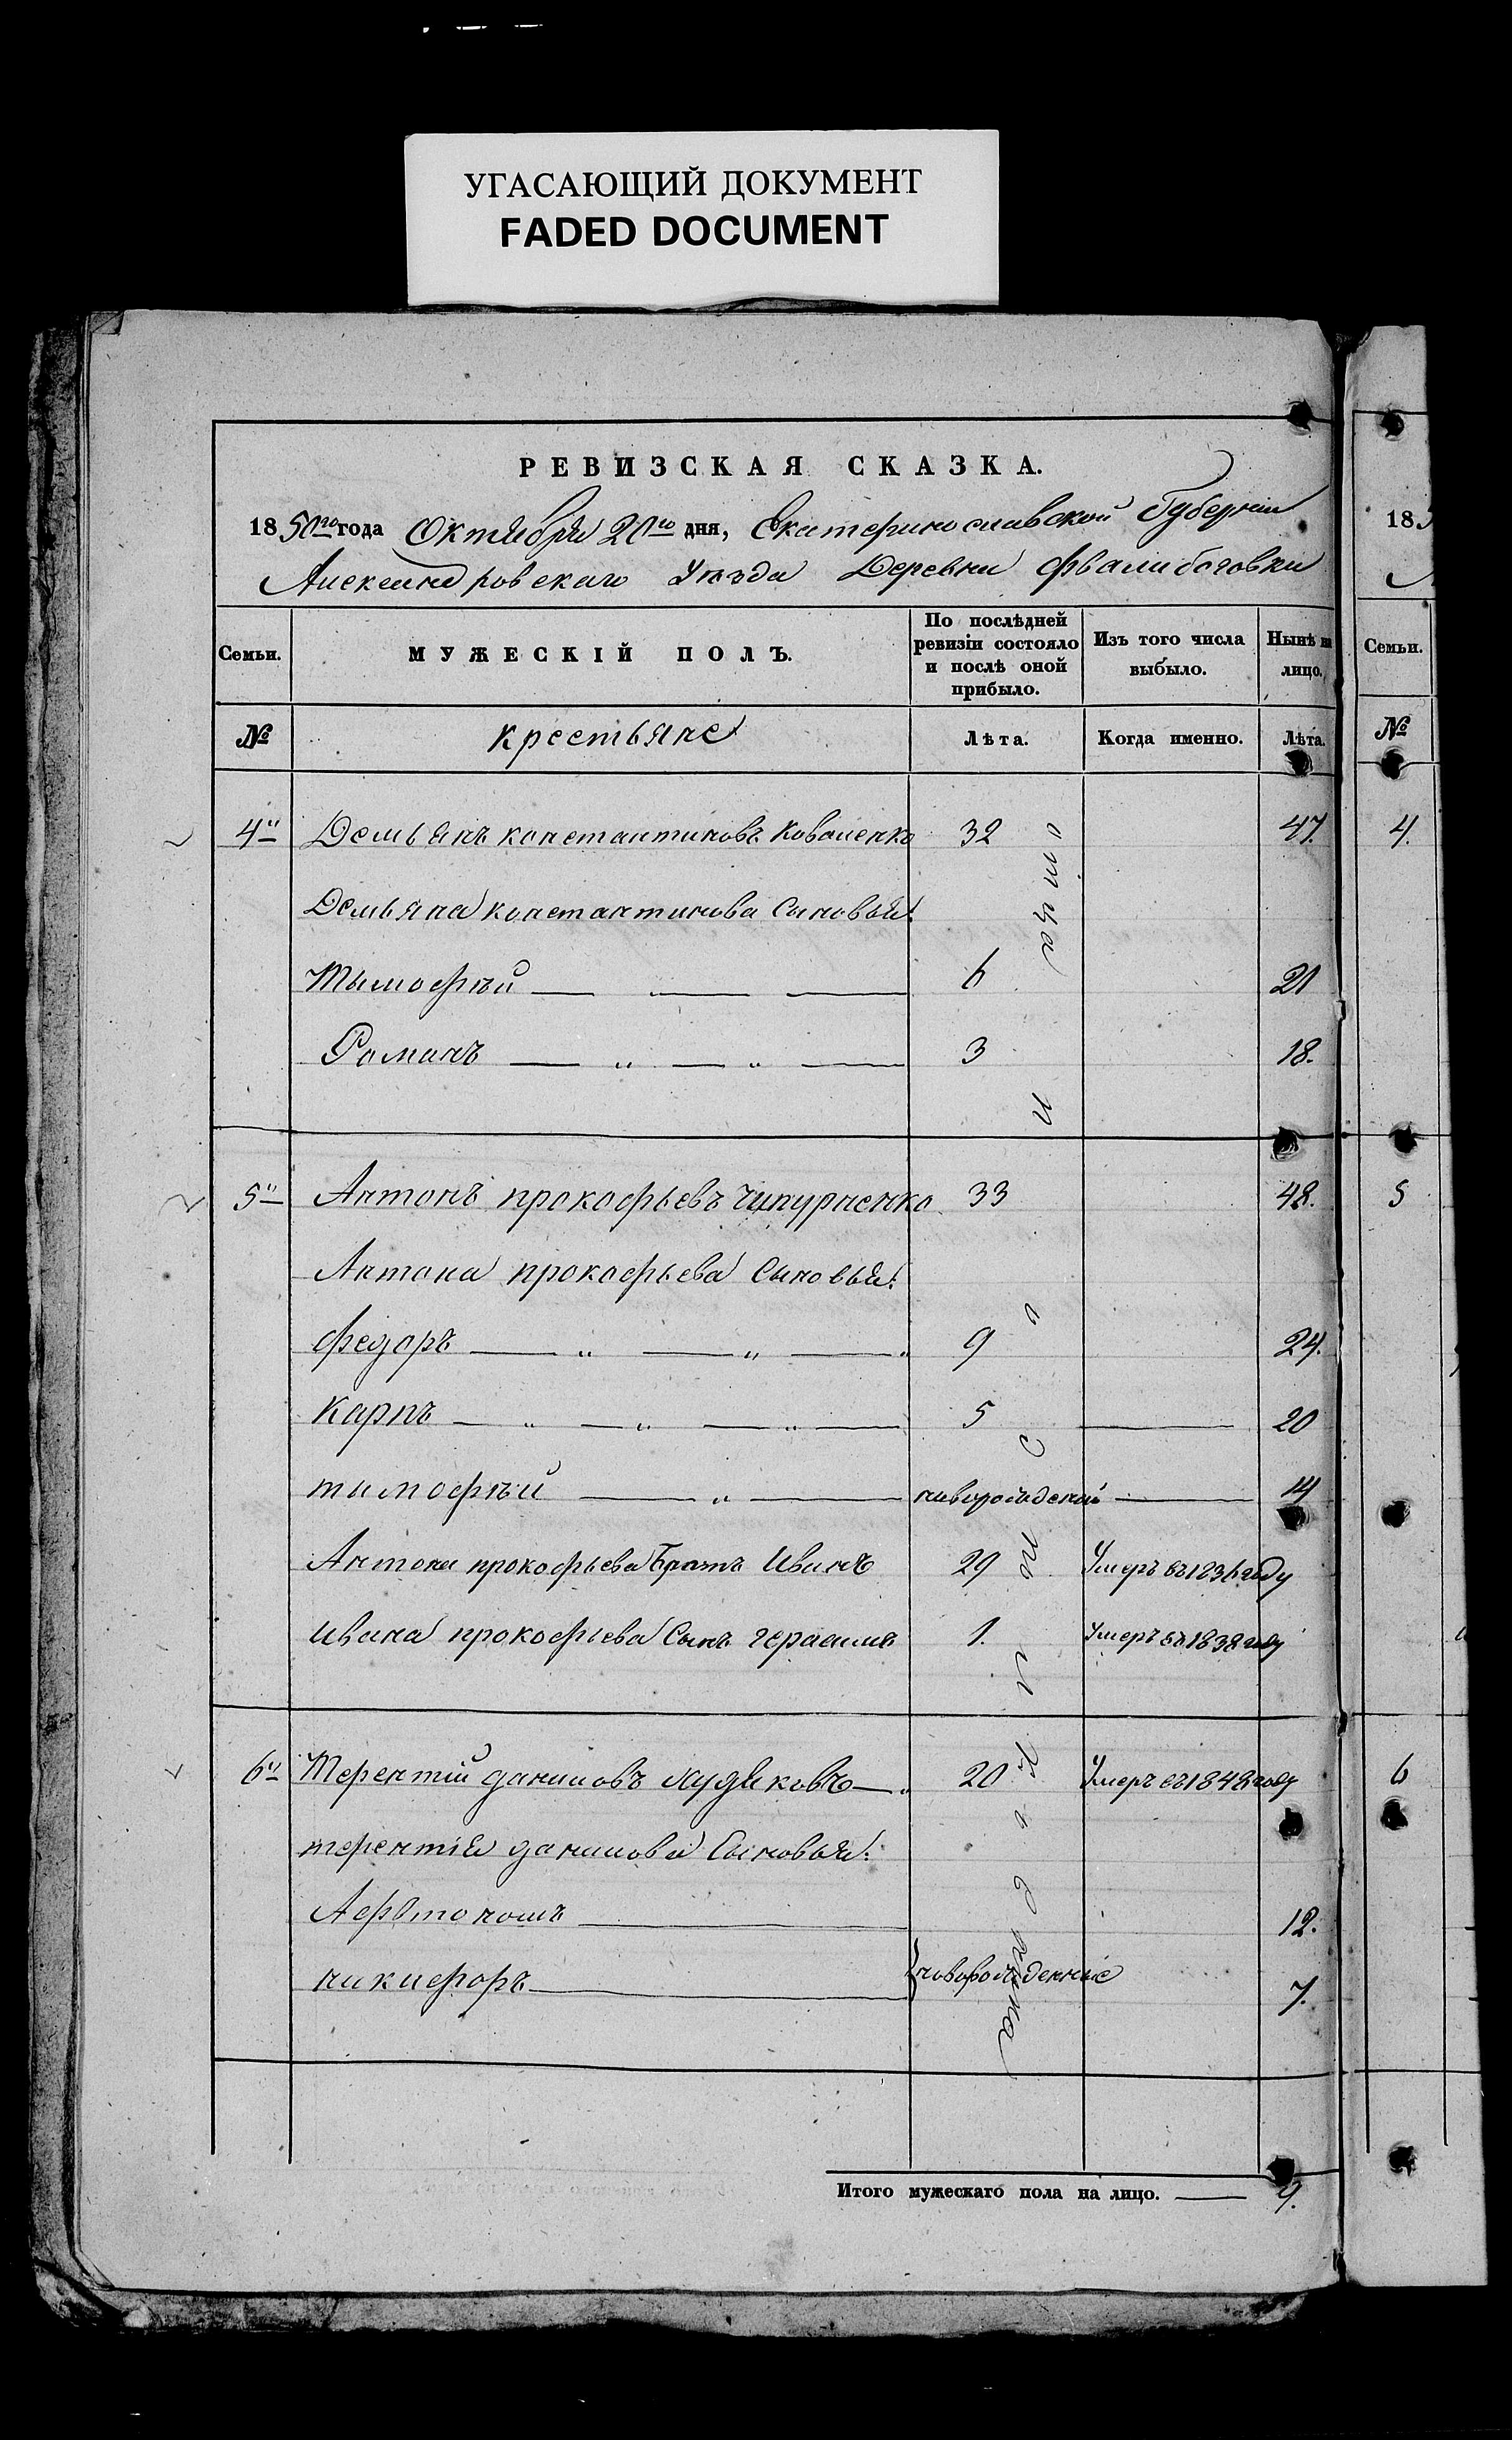 УГАСАЮЩИЙ ДОКУМЕНТ
FADED DOCUMENT
РЕВИЗСКАЯ СКАЗКА.
1850го года Октября 20го дня, Екатеринославской Губерніи
Александровскаго Уѣзда Деревни Фвалибоговки
Семьи. МУЖЕСКІЙ ПОЛЪ. По послѣдней ревизіи состояло и послѣ оной прибыло. Изъ того числа выбыло. Нынѣ на лицо.
№ крестьяне Лѣта. Когда именно. Лѣта.
4й Демьянъ константиновъ Коваленко 32 47.
Демьяна константинова Сыновья:
Тымофѣй 6 21
Романъ 3 18.
5й Антонъ прокофьевъ чипурненко 33 48.
Антона прокофьева Сыновья:
федоръ 9 24.
Карпъ 5 20
тимофѣй новорожденый 14
Антона прокофьева Братъ Иванъ 29 Умеръ въ 1836 году
Ивана прокофьева Сынъ герасимъ 1. Умеръ въ 1838 году
6й Терентій даниловъ 20 Умеръ въ 1848 году
терентія данилова Сыновья:
12.
никифоръ новорожденные 7.
Итого мужескаго пола на лицо. 9.
185
Семьи.
№
4.
5
6